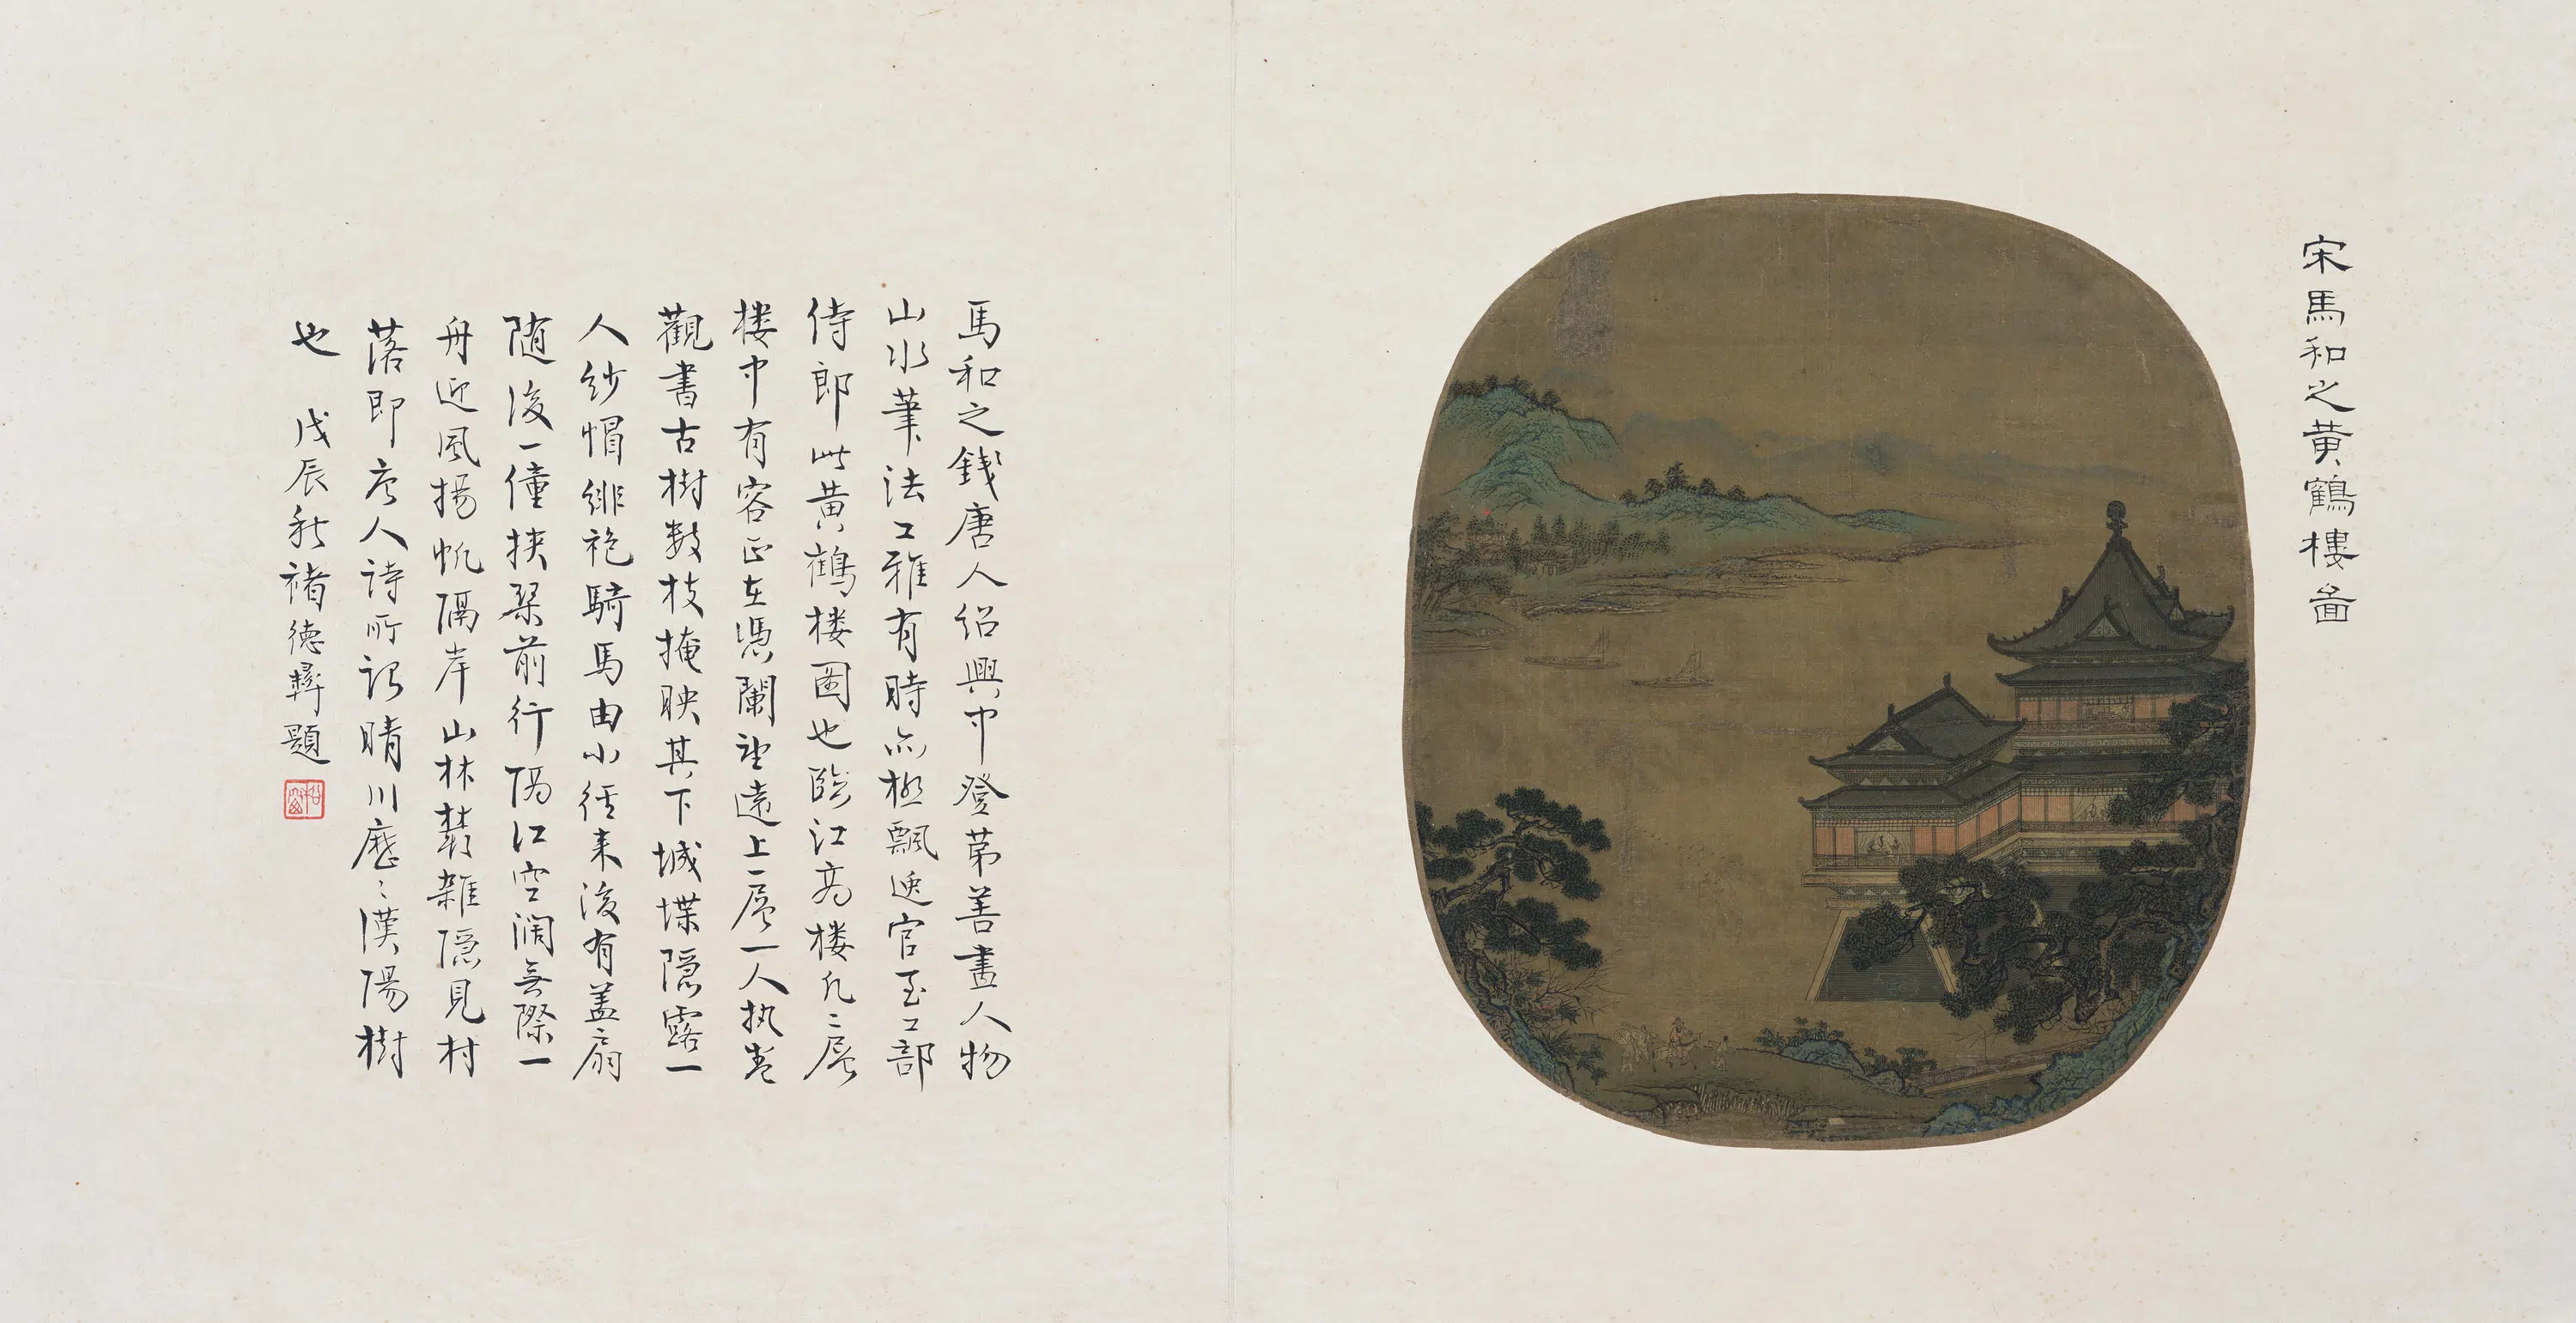 宋馬和之黄鶴樓圖
馬和之錢唐人紹興中登第善畫人物
山水筆法工雅有時亦極飄逸官至工部
侍郎此黄鶴楼圖也臨江高楼凡二層
楼中有客正在憑闌望遠上一層一人执卷
觀書古樹數枝掩映其下城堞隱露一
人纱帽绯袍騎馬由小徑来後有盖扇
随後一僮挾琴前行隔江空濶無際一
舟迎風揚帆隔岸山林叢雜隱見村
落即唐人詩所謂晴川歷〻漢陽樹
也 戊辰秋褚德彝題